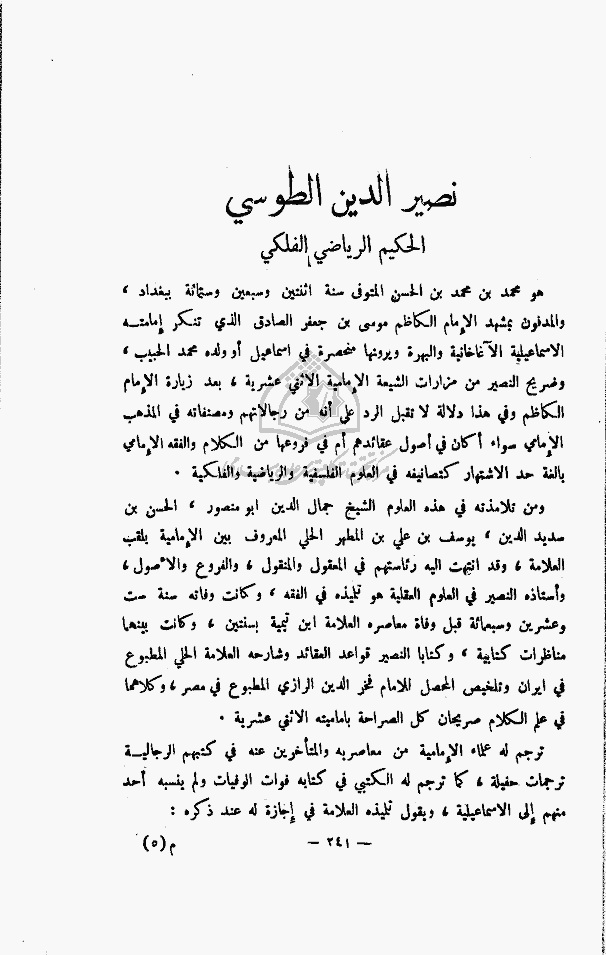 نصير الدين الطوسي
الحكيم الرياضي الفلكي
هو محمد بن محمد بن الحسن المتوفى سنة اثنتين وسبعين وستمائة ببغداد ،
والمدفون بمشهد الإمام الكاظم موسى بن جعفر الصادق الذي تنكر إمامته
الاسماعيلية الآغاخانية والبهرة ويرونها منحصرة في اسماعيل أو ولده محمد الحبيب ،
وضريح النصير من مزارات الشيعة الإمامية الاثني عشرية ، بعد زيارة الإمام
الكاظم وفي هذا دلالة لا تقبل الرد على أنه من رجالاتهم ومصنفاته في المذهب
الإمامي سواء أكان في أصول عقائدهم أم في فروعها من الكلام والفقه الإمامي
بالغة حد الاشتهار كتصانيفه في العلوم الفلسفية والرياضية والفلكية .
ومن تلامذته في هذه العلوم الشيخ جمال الدين ابو منصور ، الحسن بن
سديد الدين ، يوسف بن علي بن المطهر الحلي المعروف بين الإمامية بلقب
العلامة ، وقد انتهت اليه رئاستهم في المعقول والمنقول ، والفروع والأصول ،
وأستاذه النصير في العلوم العقلية هو تلميذه في الفقه ، وكانت وفاته سنة ست
وعشرين وسبعمائة قبل وفاة معاصره العلامة ابن تيمية بسنتين ، وكانت بينهما
مناظرات كتابية ، وكتابا النصير قواعد العقائد وشارحه العلامة الحلي المطبوع
في ايران وتلخيص المحصل للامام فخر الدين الرازي المطبوع في مصر ، وكلاهما
في علم الكلام صريحان كل الصراحة باماميته الاثني عشرية .
ترجم له علماء الإمامية من معاصريه والمتأخرين عنه في كتبهم الرجالية
ترجمات حفيلة ، كما ترجم له الكتبي في كتابه فوات الوفيات ولم ينسبه أحد
منهم إلى الاسماعيلية ، ويقول تلميذه العلامة في إجازة له عند ذكره :
— ٢٤١ —
م (٥)